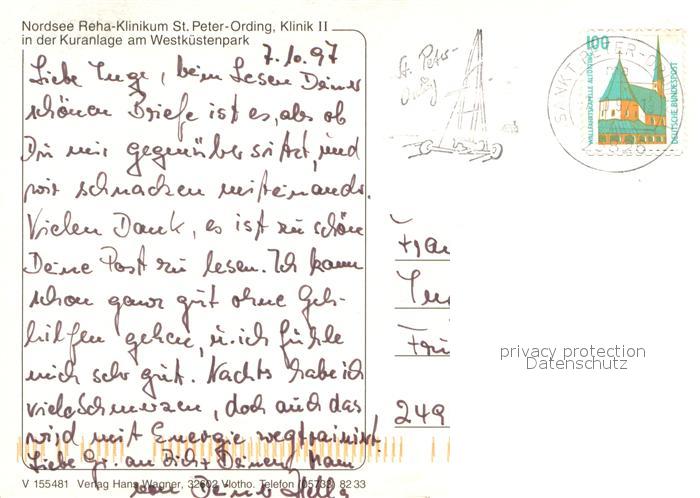 Nordsee Reha-Klinikum St. Peter-Ording, Klinik II
in der Kuranlage am Westküstenpark
7.10.97
Liebe Inge, beim Lesen Deiner
schönen Briefe ist es, als ob
Du mir gegenüber sitzt, und
wir schnacken miteinander.
Vielen Dank, es ist zu schön
Deine Post zu lesen. Ich kann
schon ganz gut ohne Geh-
hilfen gehen, u. ich fühle
mich sehr gut. Nachts habe ich
viele Schmerzen, doch auch das
wird mit Energie wegtrainiert.
Liebe Gr. an Dich + Deinen Mann
von Deiner Hella
V 155481 Verlag Hans Wagner, 32602 Vlotho. Telefon (05733) 82 33
St. Peter-
Ording
SANKT PETER-O
100
WALLFAHRTSKAPELLE ALTÖTTING
DEUTSCHE BUNDESPOST
Frau
249
privacy protection
Datenschutz